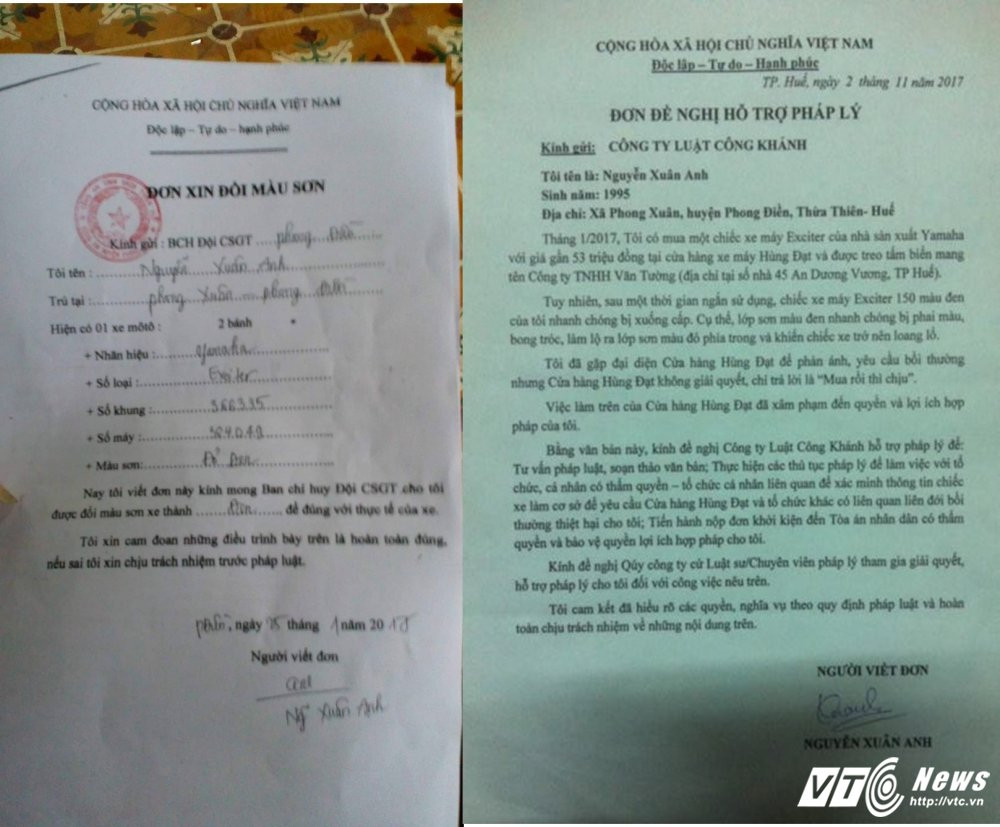 CỘNG HÒA XÃ HỘI CHỦ NGHĨA VIỆT NAM
Độc lập – Tự do – hạnh phúc
ĐƠN XIN ĐỔI MÀU SƠN
Kính gửi : BCH Đội CSGT .... phong Điền
Tôi tên : Nguyễn Xuân Anh
Trú tại : phong Xuân phong Điền
Hiện có 01 xe môtô : 2 bánh
+ Nhãn hiệu : yamaha
+ Số loại : Exciter
+ Số khung : 366335
+ Số máy :
+ Màu sơn: Đỏ Đen
Nay tôi viết đơn này kính mong Ban chỉ huy Đội CSGT cho tôi
được đổi màu sơn xe thành Đen để đúng với thực tế của xe.
Tôi xin cam đoan những điều trình bày trên là hoàn toàn đúng,
nếu sai tôi xin chịu trách nhiệm trước pháp luật.
ngày 25 tháng 1 năm 20
Người viết đơn
Ng Xuân Anh
CỘNG HÒA XÃ HỘI CHỦ NGHĨA VIỆT NAM
Độc lập – Tự do – Hạnh phúc
TP. Huế, ngày 2 tháng 11 năm 2017
ĐƠN ĐỀ NGHỊ HỖ TRỢ PHÁP LÝ
Kính gửi: CÔNG TY LUẬT CÔNG KHÁNH
Tôi tên là: Nguyễn Xuân Anh
Sinh năm: 1995
Địa chỉ: Xã Phong Xuân, huyện Phong Điền, Thừa Thiên- Huế
Tháng 1/2017, Tôi có mua một chiếc xe máy Exciter của nhà sản xuất Yamaha
với giá gần 53 triệu đồng tại cửa hàng xe máy Hùng Đạt và được treo tấm biển mang
tên Công ty TNHH Văn Tường (địa chỉ tại số nhà 45 An Dương Vương, TP Huế).
Tuy nhiên, sau một thời gian ngắn sử dụng, chiếc xe máy Exciter 150 màu đen
của tôi nhanh chóng bị xuống cấp. Cụ thể, lớp sơn màu đen nhanh chóng bị phai màu,
bong tróc, làm lộ ra lớp sơn màu đỏ phía trong và khiến chiếc xe trở nên loang lổ.
Tôi đã gặp đại diện Cửa hàng Hùng Đạt để phản ánh, yêu cầu bồi thường
nhưng Cửa hàng Hùng Đạt không giải quyết, chỉ trả lời là “Mua rồi thì chịu”.
Việc làm trên của Cửa hàng Hùng Đạt đã xâm phạm đến quyền và lợi ích hợp
pháp của tôi.
Bằng văn bản này, kính đề nghị Công ty Luật Công Khánh hỗ trợ pháp lý để:
Tư vấn pháp luật, soạn thảo văn bản; Thực hiện các thủ tục pháp lý để làm việc với tổ
chức, cá nhân có thẩm quyền – tổ chức cá nhân liên quan để xác minh thông tin chiếc
xe làm cơ sở để yêu cầu Cửa hàng Hùng Đạt và tổ chức khác có liên quan liên đới bồi
thường thiệt hại cho tôi; Tiến hành nộp đơn khởi kiện đến Tòa án nhân dân có thẩm
quyền và bảo vệ quyền lợi ích hợp pháp cho tôi.
Kính đề nghị Qúy công ty cử Luật sư/Chuyên viên pháp lý tham gia giải quyết,
hỗ trợ pháp lý cho tôi đối với công việc nêu trên.
Tôi cam kết đã hiểu rõ các quyền, nghĩa vụ theo quy định pháp luật và hoàn
toàn chịu trách nhiệm về những nội dung trên.
NGƯỜI VIẾT ĐƠN
NGUYỄN XUÂN ANH
VTC News
http://vtc.vn